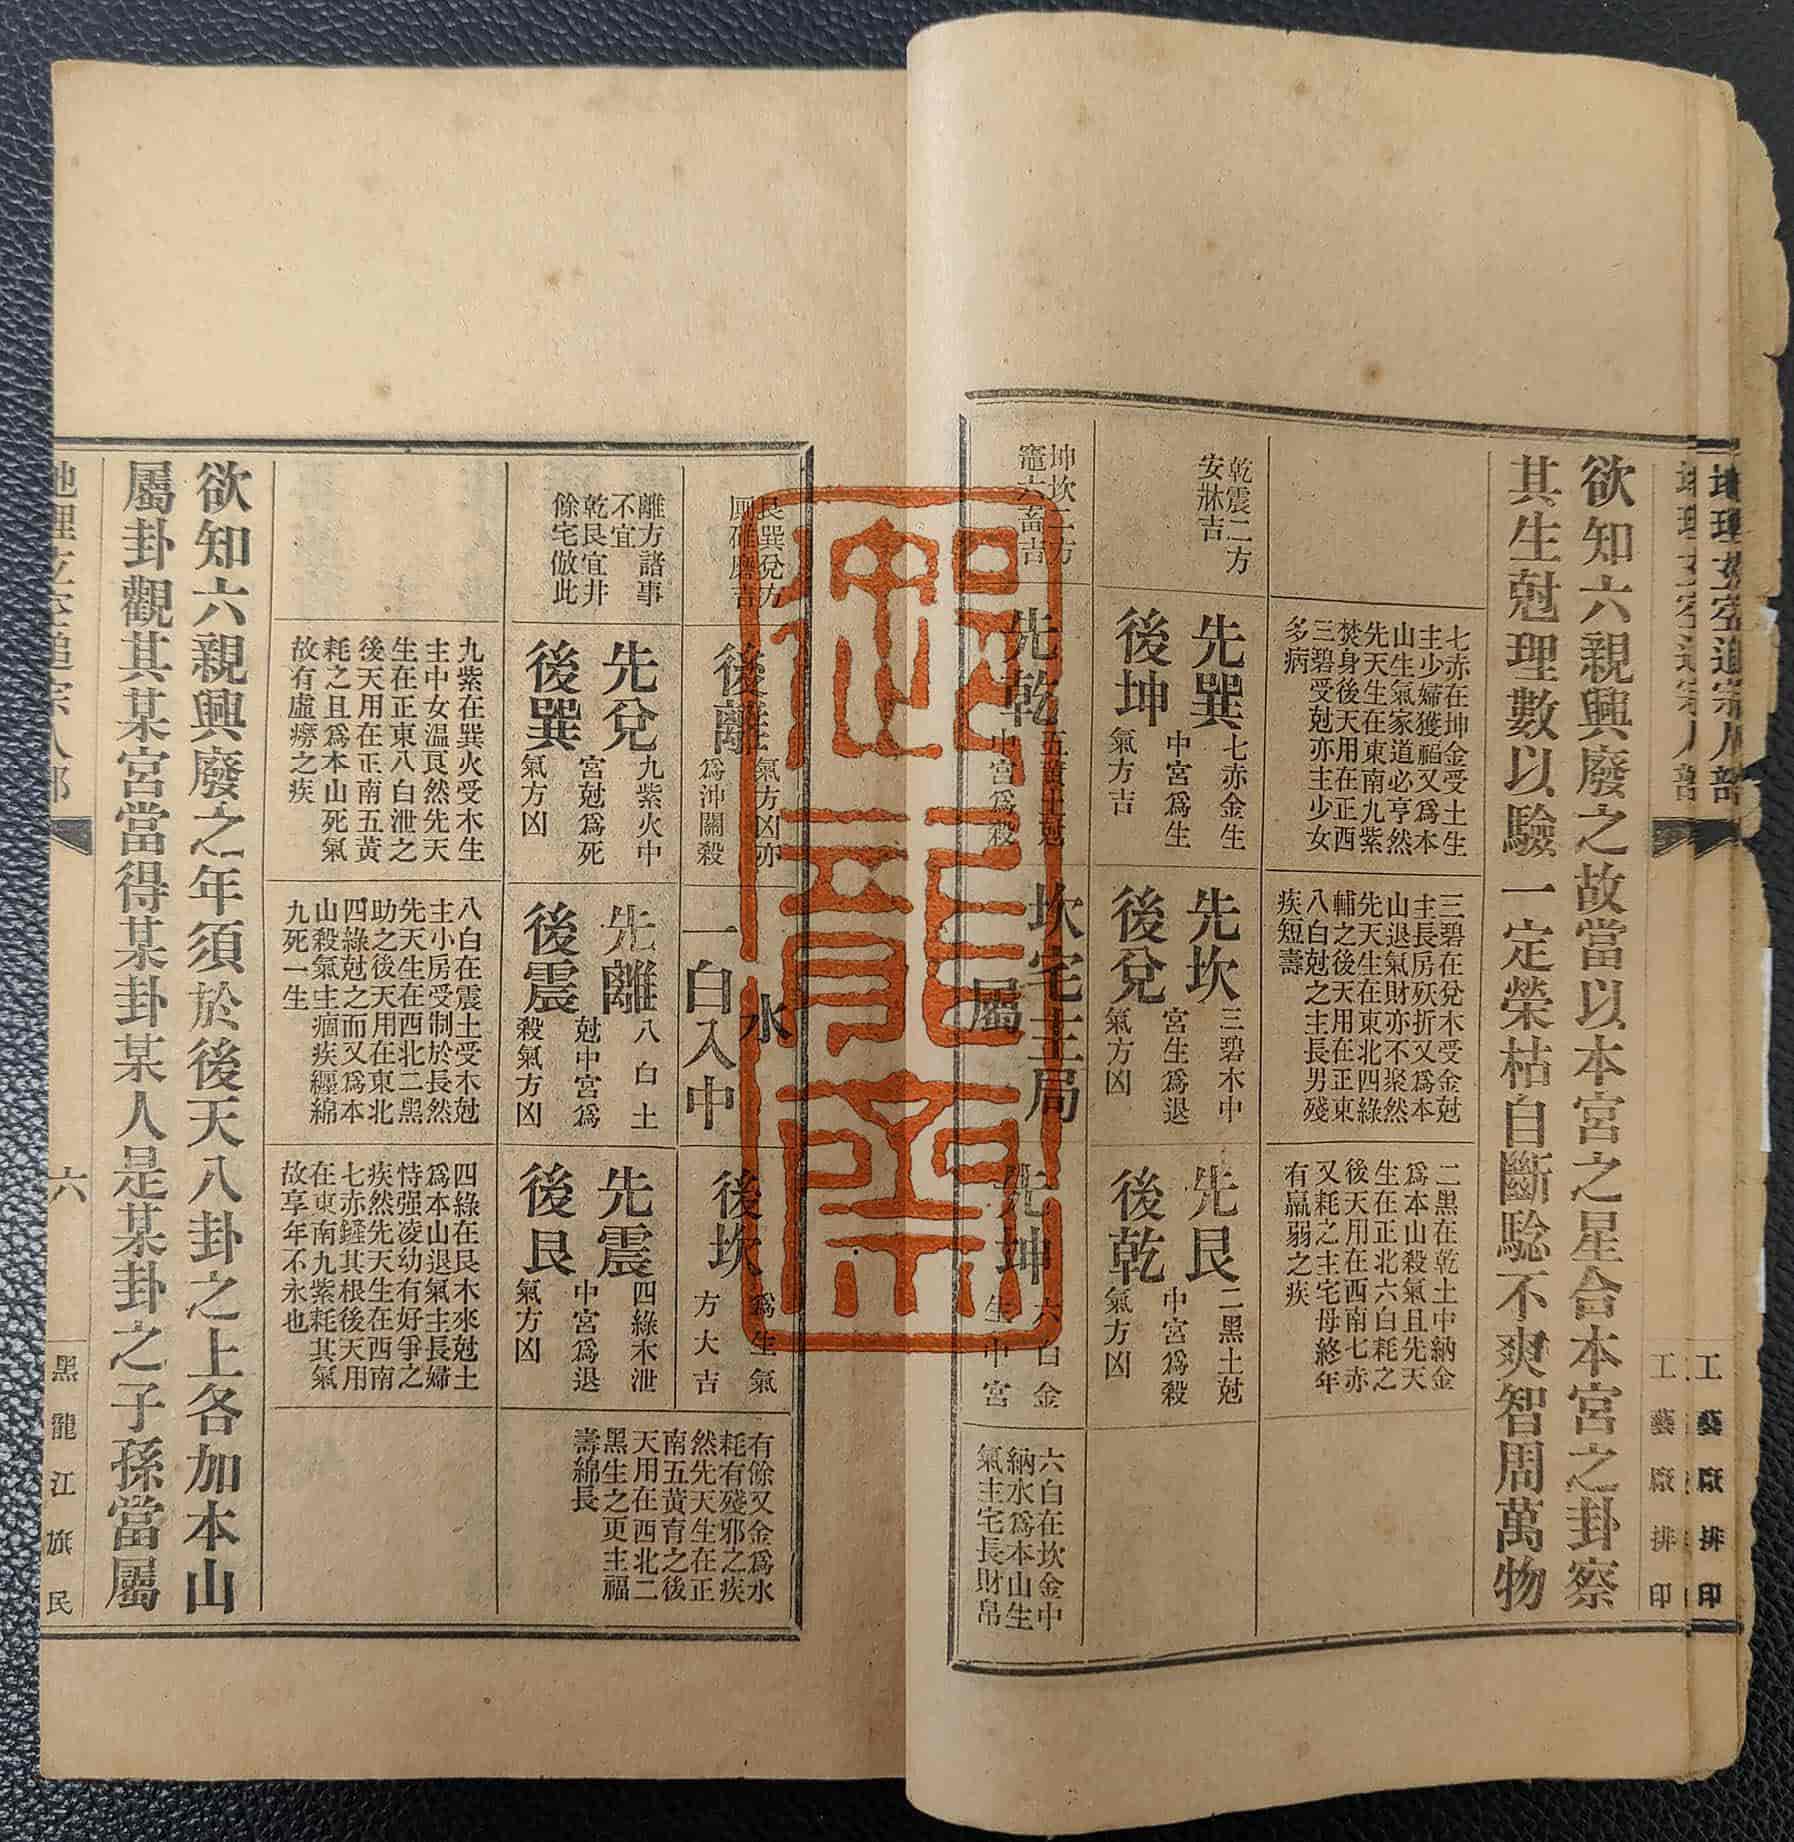 地理玄空追宗人部
工藝廠排印
欲知六親興廢之故當以本宮之星合本宮之卦察
其生尅理數以驗一定榮枯白斷騐不爽智周萬物
七赤在坤金受土生
主少婦獲福又爲本
山生氣家道必亨然
先天生在東南九紫
焚身後天用在正西
三碧受尅亦主少女
多病
三碧在兌木受金尅
主長房殀折又爲本
山退氣財亦不聚然
先天生在東北四綠
輔之後天用在正東
八白尅之主長男殘
疾短壽
二黑在乾土中納金
爲本山殺氣且先天
生在正北六白耗之
後天用在西南七赤
又耗之主宅母終年
有羸弱之疾
乾震二方
安牀吉
先巽
後坤
七赤金生
中宮爲生
氣方吉
先坎
後兌
三碧木中
宮生爲退
氣方凶
先艮
後乾
二黑土尅
中宮爲殺
氣方凶
坤坎二方
竈六畜吉
先乾
五黃土尅
中宮爲殺
坎宅主局
屬
先坤
六白金
生中宮
六白在坎金中
納水爲本山生
氣主宅長財帛
艮巽兌方
厠碓磨吉
後離
氣方凶亦
爲沖關殺
水
一白入中
後坎
爲生氣
方大吉
有餘又金爲水
耗有殘邪之疾
然先天生在正
南五黃育之後
天用在西北二
黑生之更主福
壽綿長
離方諸事
不宜
乾艮宜井
餘宅倣此
先兌
後巽
九紫火中
宮尅爲死
氣方凶
先離
後震
八白土
尅中宮爲
殺氣方凶
先震
後艮
四綠木泄
中宮爲退
氣方凶
九紫在巽火受木生
主中女溫良然先天
生在正東八白泄之
後天用在正南五黃
耗之且爲本山死氣
故有虛癆之疾
八白在震土受木尅
主小房受制於長然
先天生在西北二黑
助之後天用在東北
四綠尅之而又爲本
山殺氣主痼疾纒綿
九死一生
四綠在艮木來尅土
爲本山退氣主長婦
恃强凌幼有好爭之
疾然先天生在西南
七赤鏟其根後天用
在東南九紫耗其氣
故享年不永也
欲知六親興廢之年須於後天八卦之上各加本山
屬卦觀其某宮當得某卦某人是某卦之子孫當屬
地理玄空追宗人部
六
黑龍江旗民